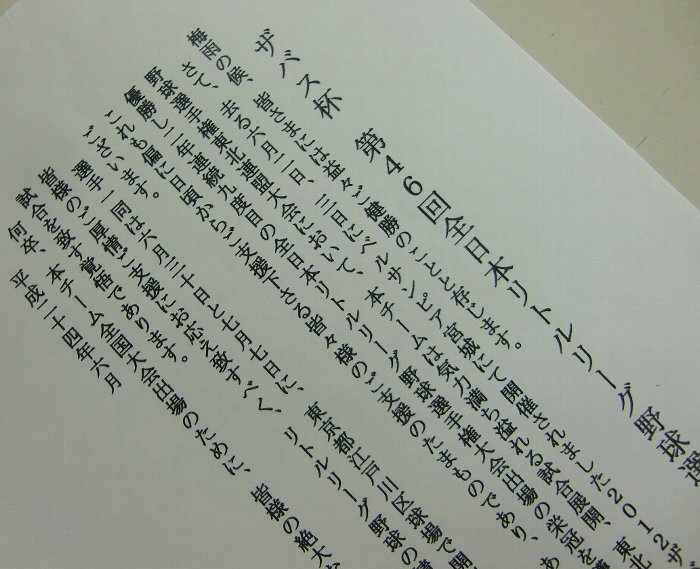 ザバス杯　第46回全日本リトルリーグ野球選
梅雨の候、皆さまには益々ご健勝のことと存じます。
さて、去る六月二日、三日にベルサンピア宮城にて開催されました2012ザ
野球選手権東北連盟大会において、本チームは気力満ち溢れる試合展開、東北
優勝し二年連続九度目の全日本リトルリーグ野球選手権大会出場の栄冠を
これも偏に日頃からご支援下さる皆々様のご支援のたまものであり、あ
ございます。
選手一同は六月三十日と七月七日に、東京都江戸川区球場で開
皆様のご厚情ご支援にお応え致すべく、リトルリーグ野球の
試合を致す覚悟であります。
何卒、本チーム全国大会出場のために、皆様の絶大な
平成二十四年六月